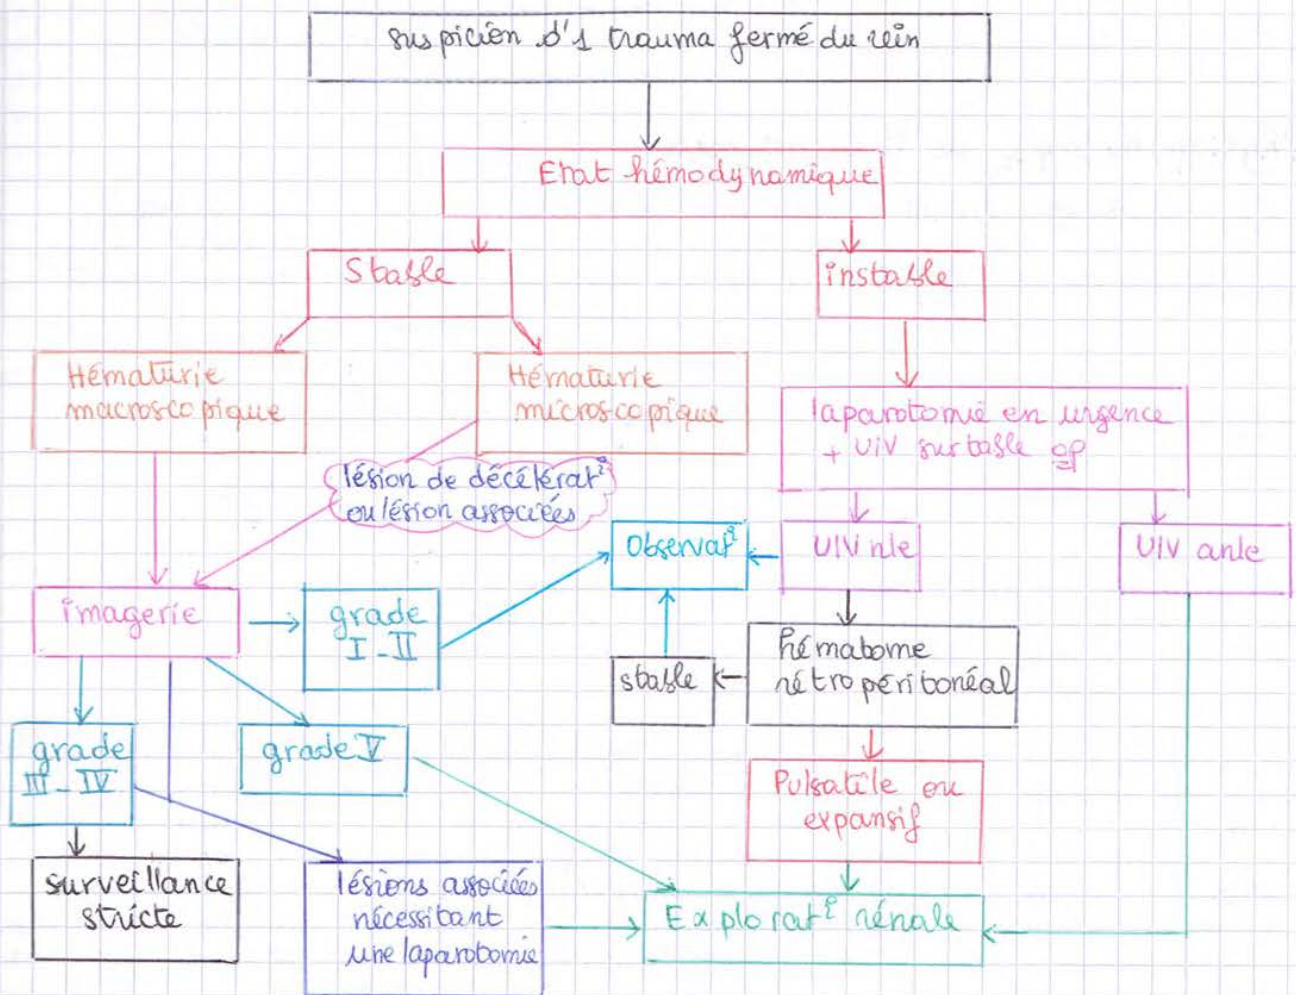 suspicion d'1 trauma fermé du rein
Etat hémodynamique
Stable
instable
Hématurie
macroscopique
Hématurie
microscopique
laparotomie en urgence
+ UIV sur table op
lésion de décélérat°
ou lésion associées
Observat°
UIV nle
UIV anle
imagerie
grade
I - II
hématome
rétropéritonéal
stable
grade
III - IV
grade V
Pulsatile ou
expansif
surveillance
stricte
lésions associées
nécessitant
une laparotomie
Explorat° rénale